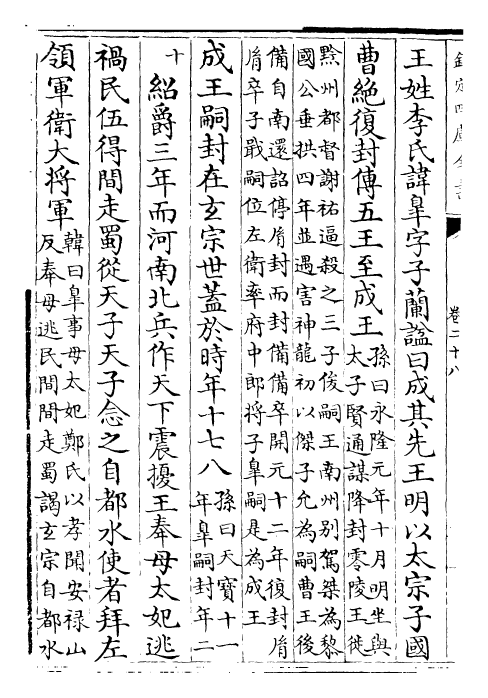 欽定四庫全書
卷二十八
王姓李氏諱臯字子蘭諡曰成其先王明以太宗子國
曹絶復封傳五王至成王
孫曰永隆元年十月明坐與
太子賢通謀降封零陵王徙
黔州都督謝祐逼殺之三子俊嗣王南州别駕桀為黎
國公垂拱四年並遇害神龍初以傑子允為嗣曹王後
備自南還詔停𦙍封而封備備卒開元十二年復封𦙍
𦙍卒子戢嗣位左衛率府中郎将子臯嗣是為成王
成王嗣封在玄宗世蓋於時年十七八
孫曰天寳十一
年臯嗣封年二
十
紹爵三年而河南北兵作天下震擾王奉母太妃逃
禍民伍得間走蜀從天子天子念之自都水使者拜左
領軍衛大将軍
韓曰臯事母太妃鄭氏以孝聞安禄山
反奉母逃民間間走蜀謁玄宗自都水